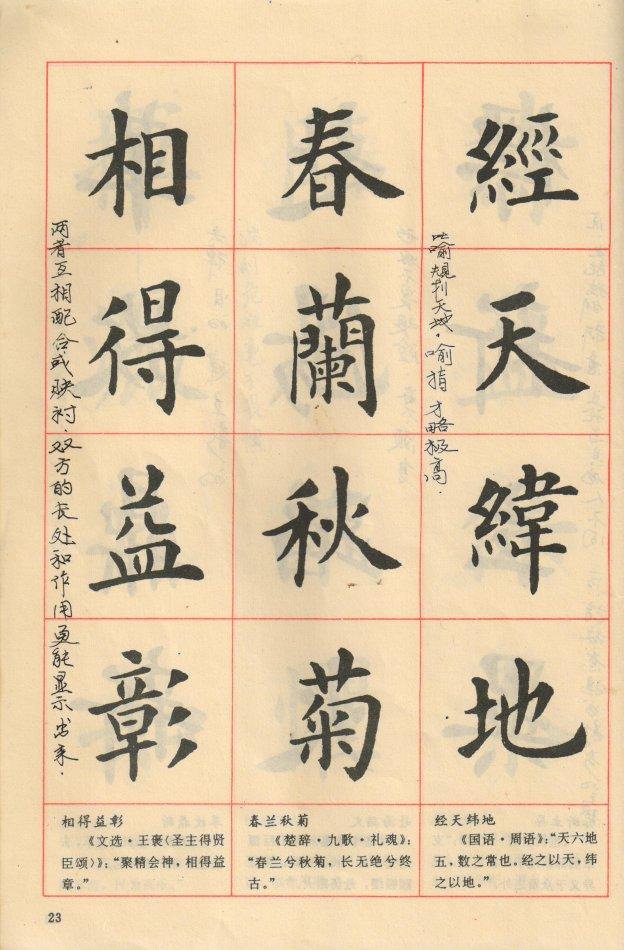 經天緯地
比喻规划天地。喻指才略极高.
春蘭秋菊
相得益彰
两者互相配合或映衬.双方的长处和作用更能显示出来.
经天纬地
《国语·周语》：“天六地
五，数之常也。经之以天，纬
之以地。”
春兰秋菊
《楚辞·九歌·礼魂》：
“春兰兮秋菊，长无绝兮终
古。”
相得益彰
《文选·王褒〈圣主得贤
臣颂〉》：“聚精会神，相得益
章。”
23